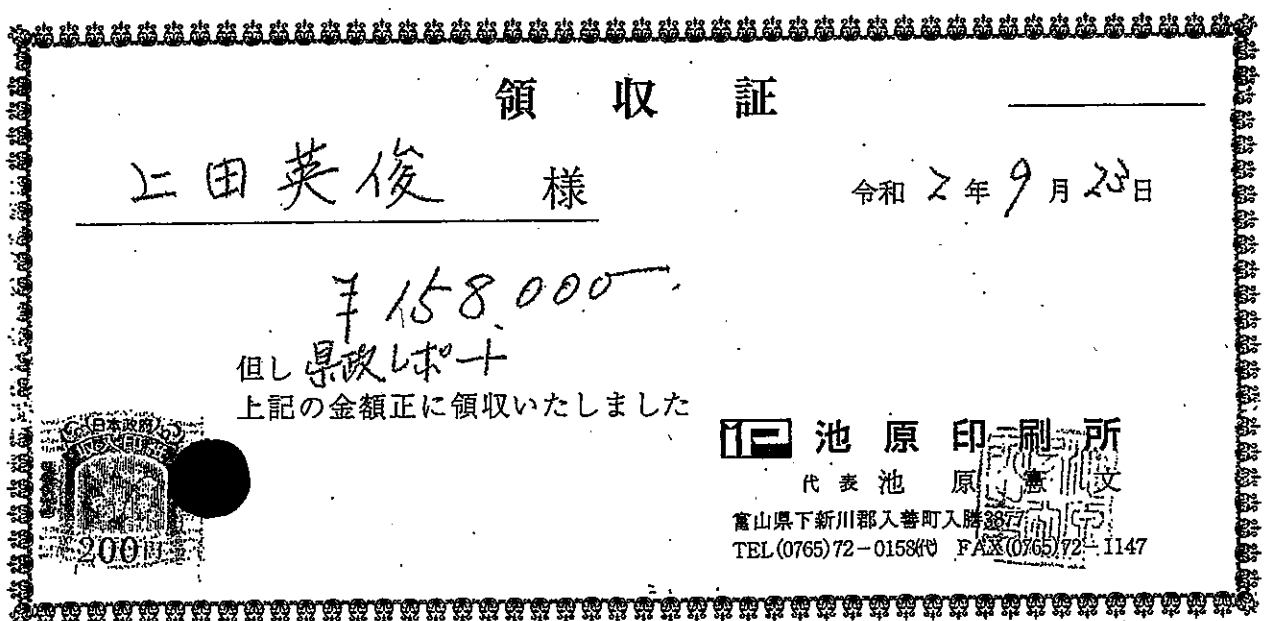 領収証
上田英俊 様
令和2年9月23日
¥158,000-
但し 県政レポート
上記の金額正に領収いたしました
日本政府
200円
池原印刷所
代表 池原憲文
富山県下新川郡入善町入膳3877
TEL(0765)72-0158(代) FAX(0765)72-1147